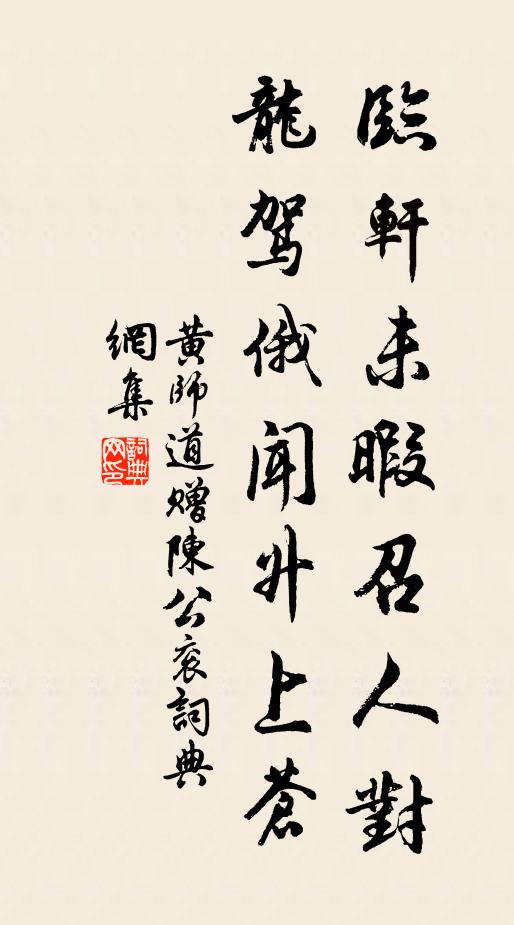 臨軒未暇召人對
龍駕俄聞升上蒼
黃師道贈陳公袞詞典
網集
詞典網印